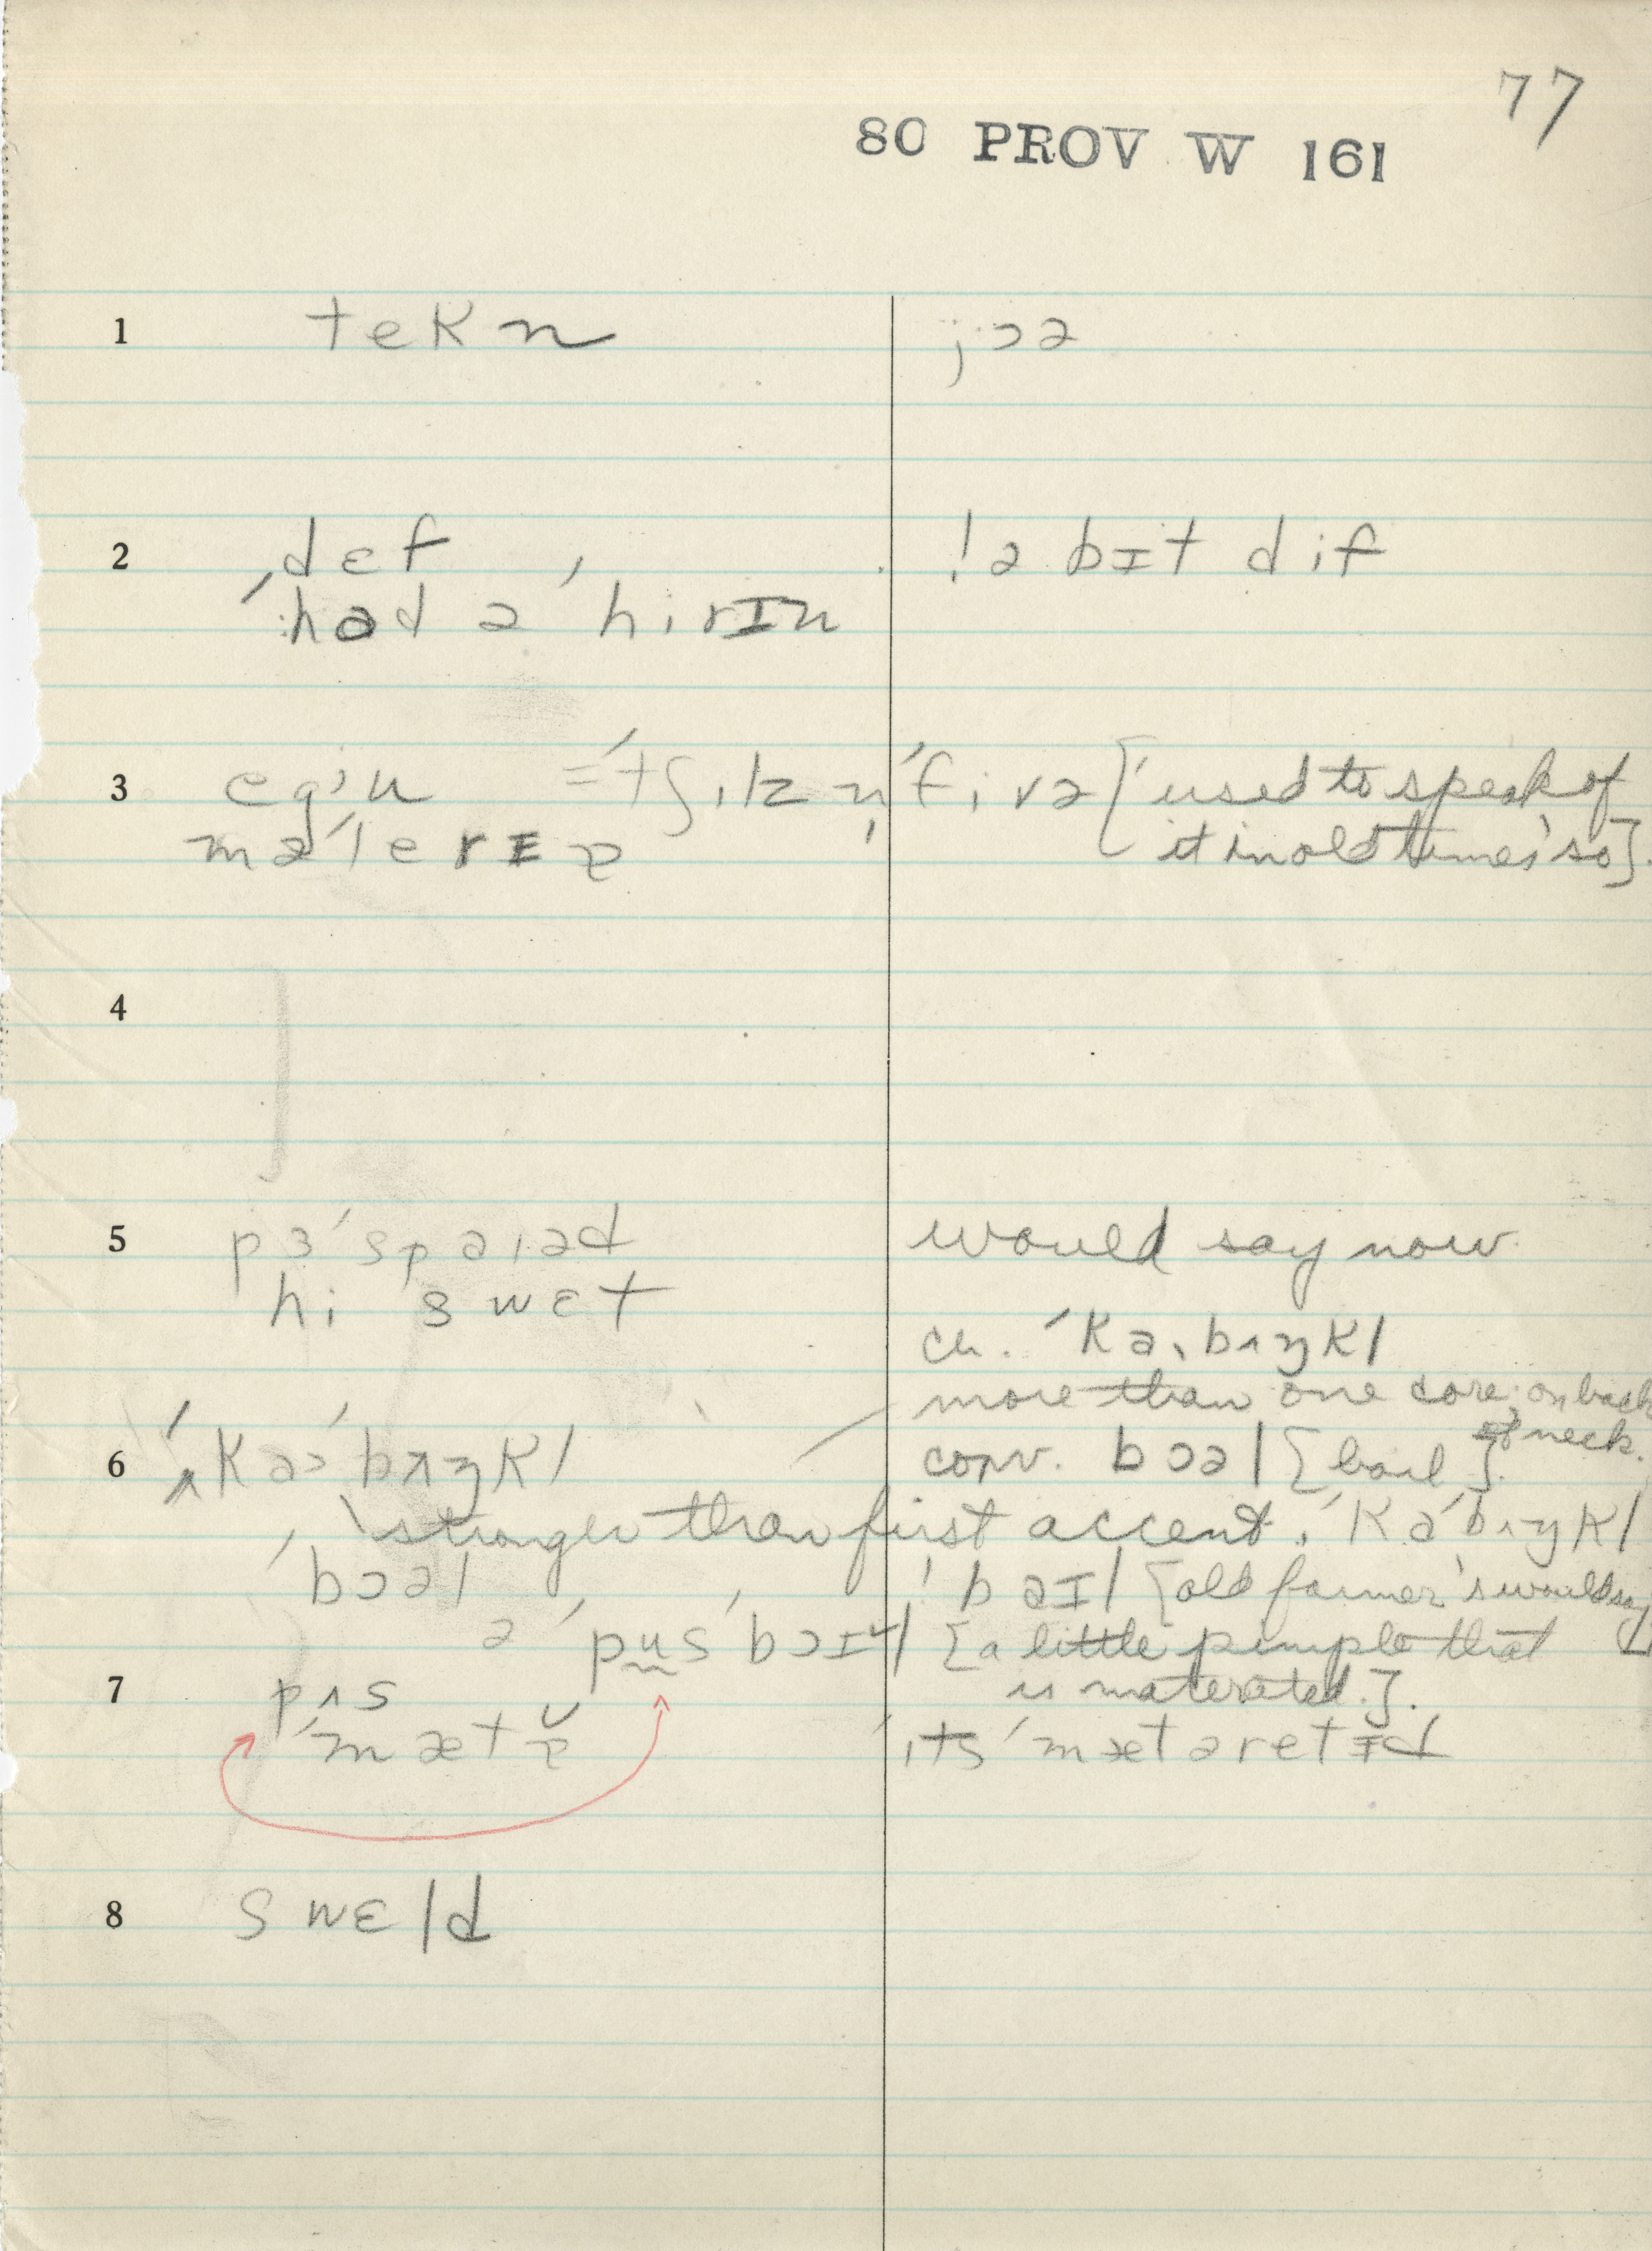 77
80 PROV W 161
1 tekn jɔə
2 ˌdɛf ! ə bɪt dif
ˈhad ə ˈhirɪn
3 egˈu = ˈtʃɪlz n̩ ˈfivə [ˈused to speak of
məˈlerɪə it in old times' so].
4
5 pɜˈspaɪəd would say now.
hi swɛt
ch. ˈkaˌbʌŋkl
more than one core on back
of neck.
6 ˈkaˈbʌŋkl conv. bɔəl [boil].
stronger than first accent. ˈkaˈbʌŋkl
ˈbɔəl ! bəɪl [old farmer's would say]
ə ˈpus ˈbɔɪl [a little pimple that
7 pʌs is materated.].
ˈmætə ɪts ˈmætəretɪd
8 swɛld